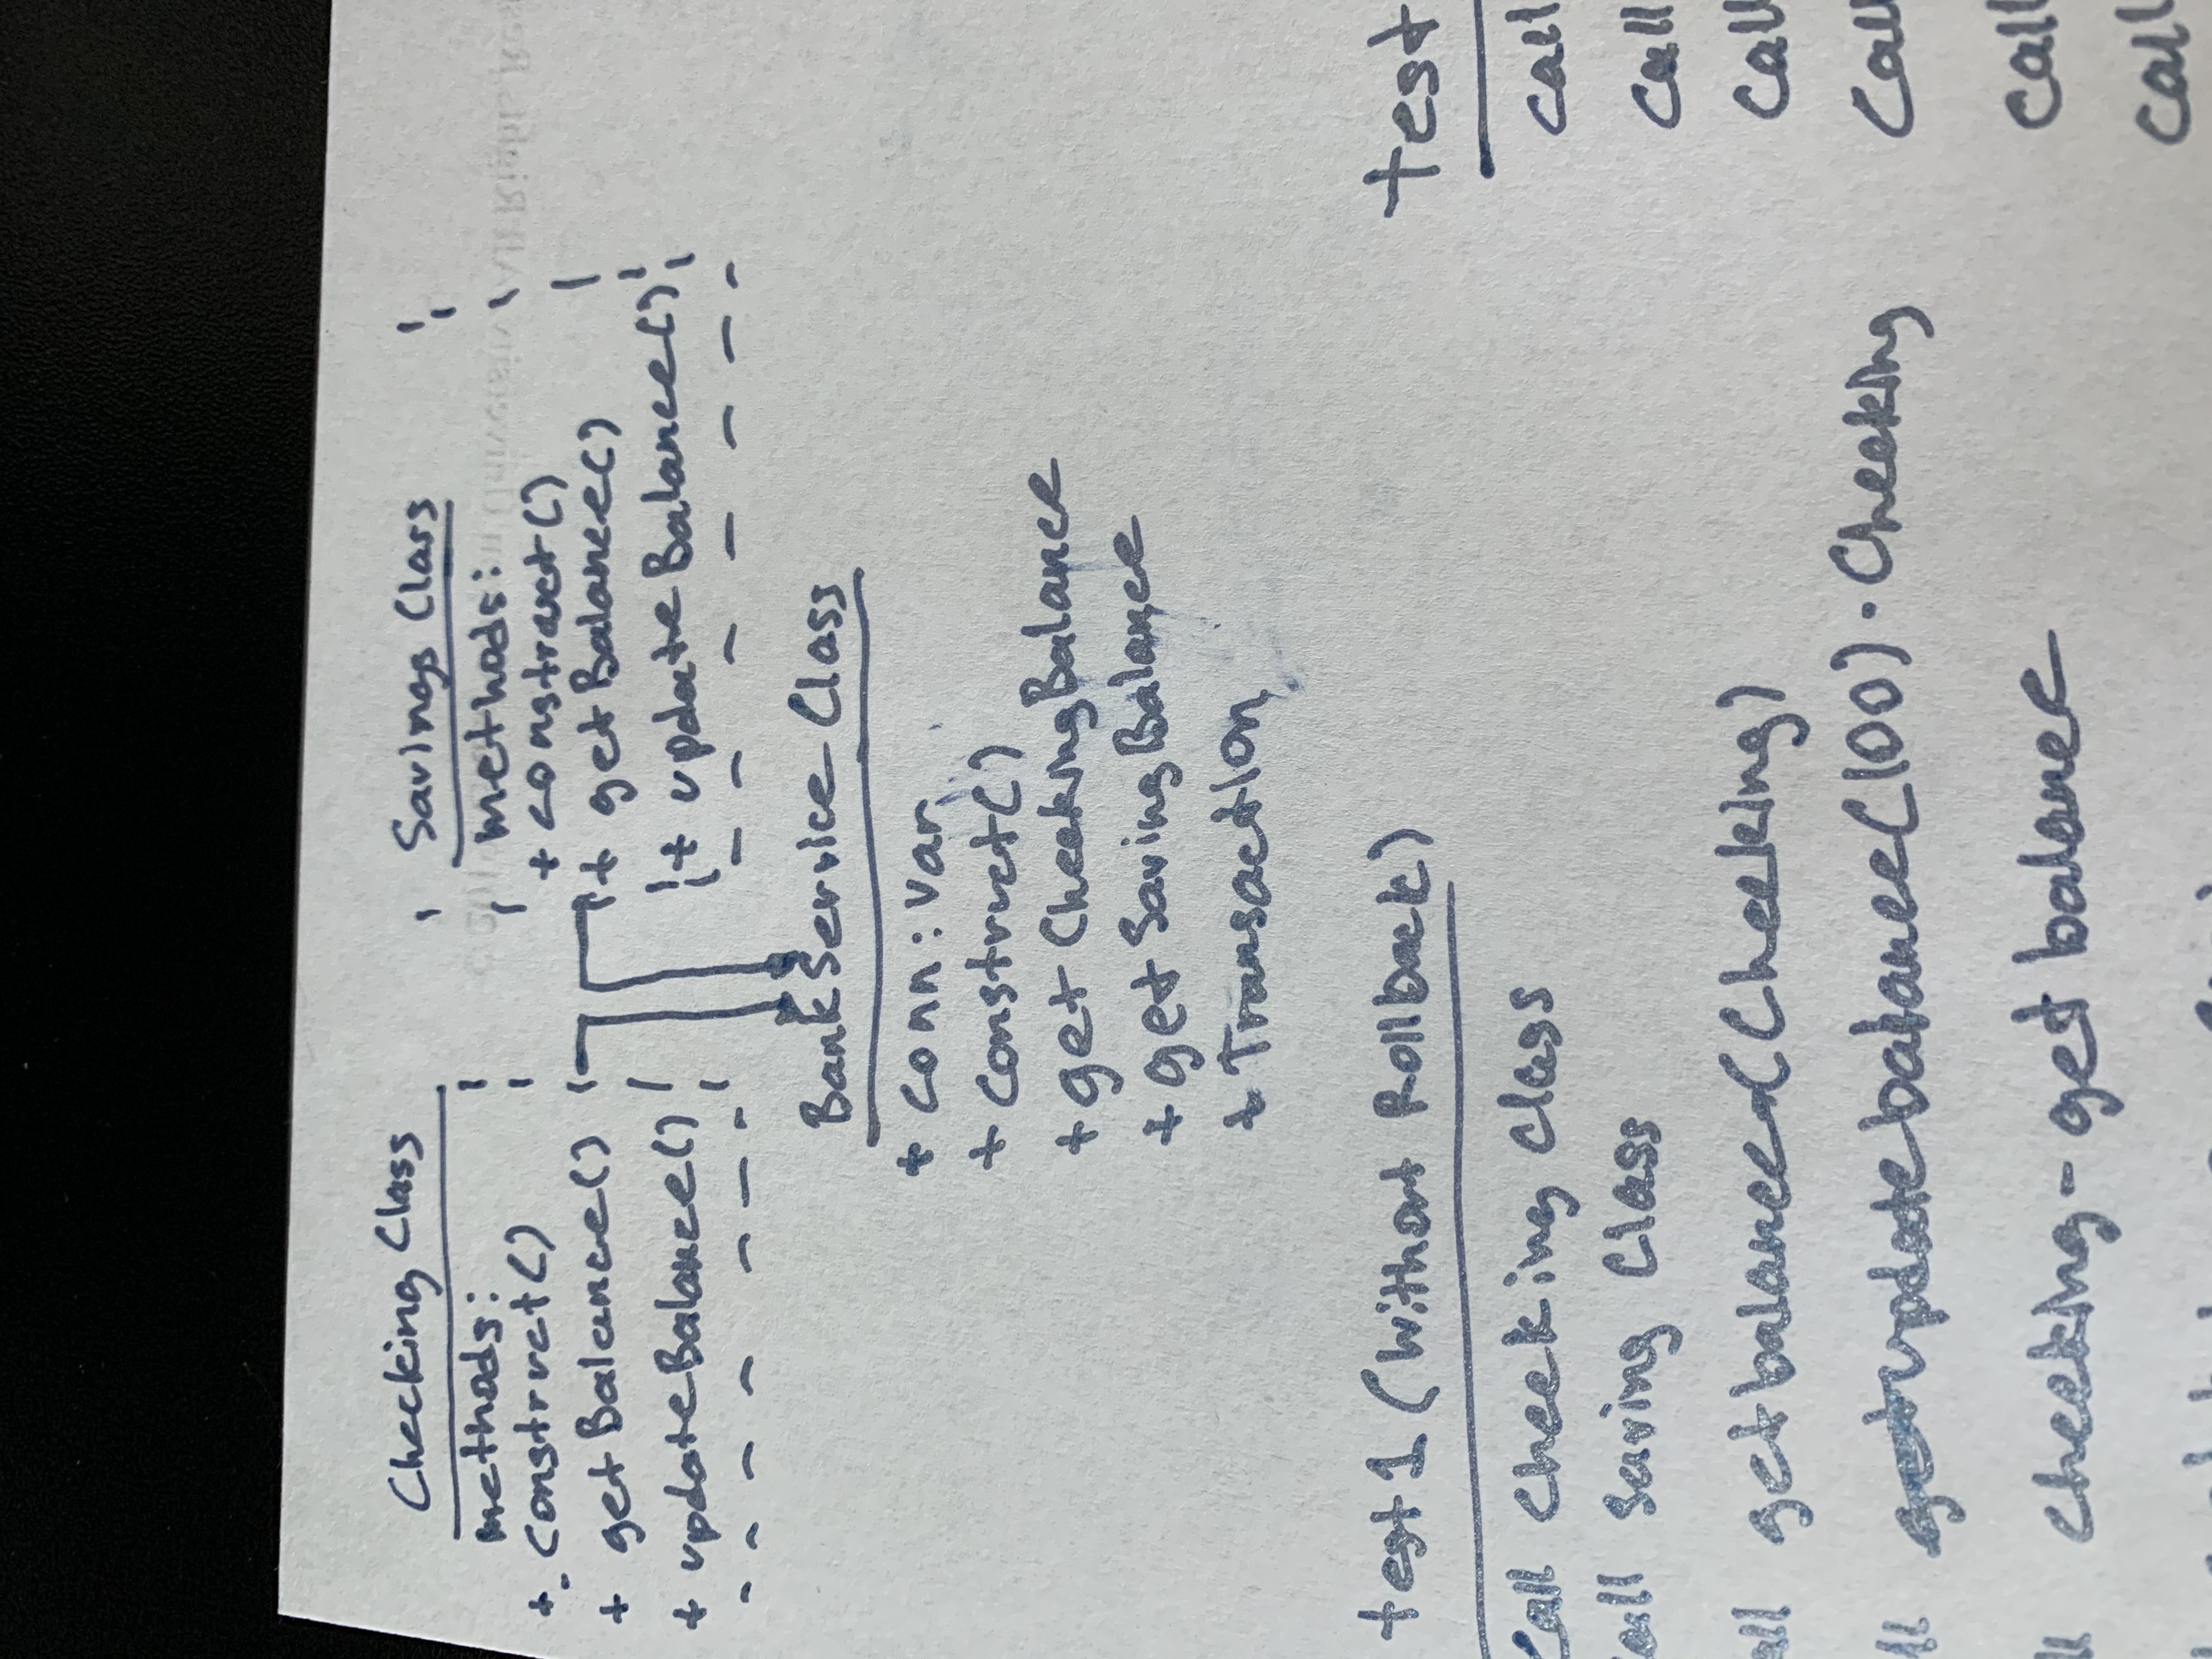 Checking Class
methods:
+ construct()
+ getBalance()
+ updateBalance()
Savings Class
methods:
+ construct()
+ getBalance()
+ updateBalance()
BankService Class
+ conn: var
+ construct()
+ get CheckingBalance
+ get SavingBalance
+ Transaction
test 1 (Without Rollback)
Call Checking Class
Call Saving Class
all getbalance(Checking)
ll updatebalance(100) · Checking
ll checking - get balance
test
Call
Call
Call
Call
Call
Call